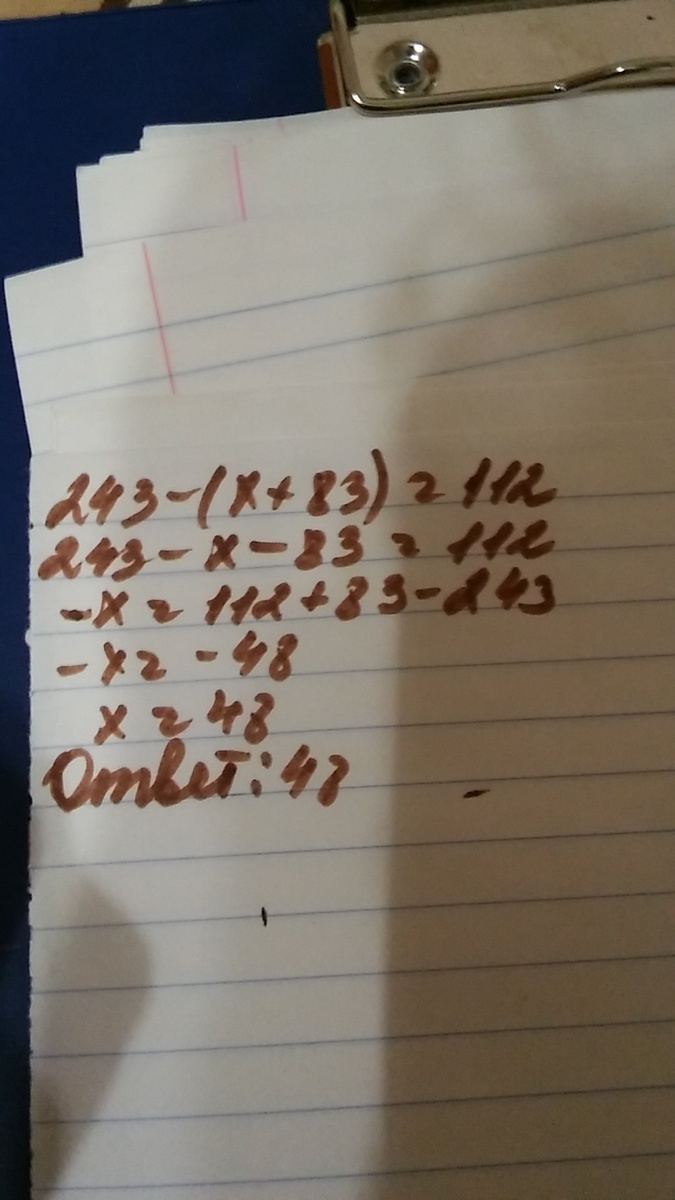 243-(x+83)=112
243-x-83=112
-x=112+83-243
-x=-48
x=48
Ответ: 48